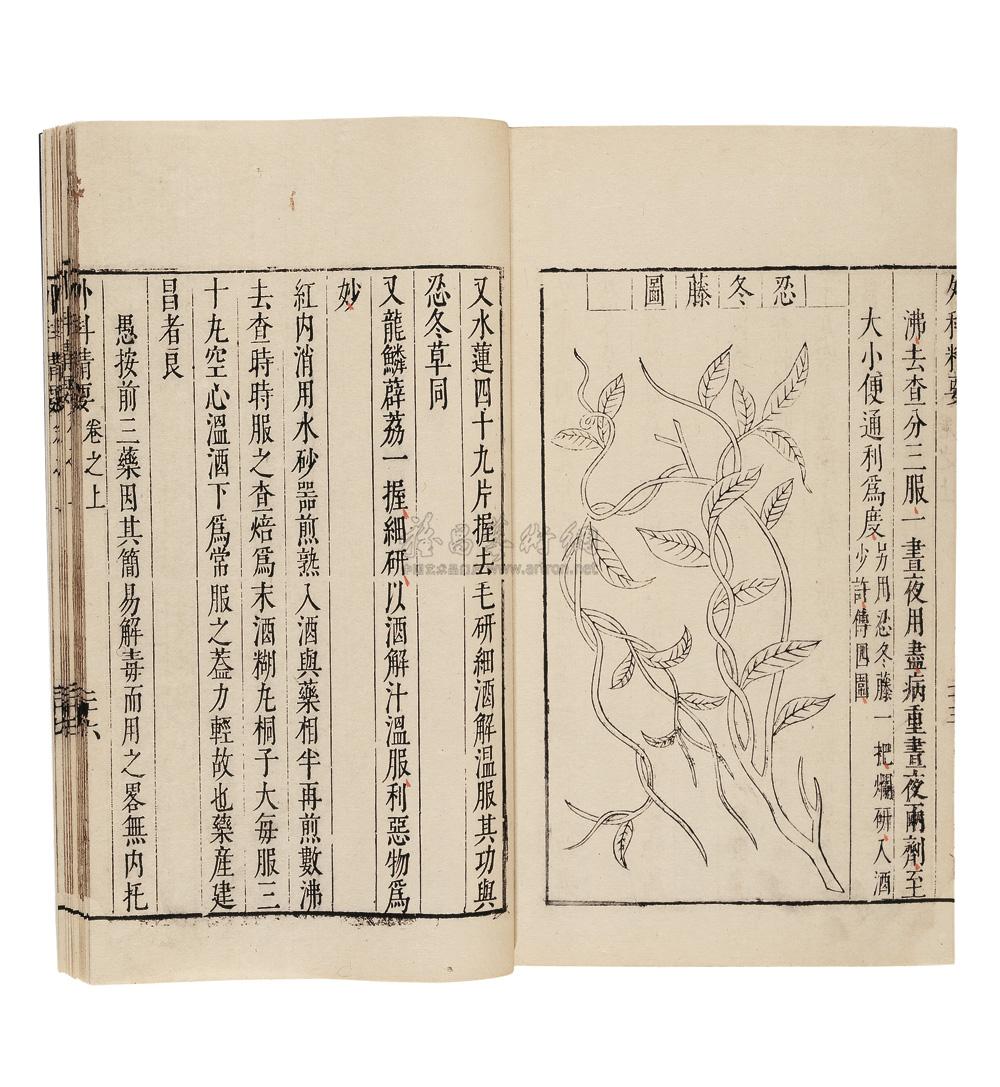 沸去查分三服一晝夜用盡病重晝夜兩劑至
大小便通利爲度另用忍冬藤一把爛研入酒
少許傅四圍
忍冬藤圖
又水蓮四十九片握去毛研細酒解溫服其功與
忍冬草同
又龍鱗薜荔一握細研以酒解汁溫服利惡物爲
妙
紅内消用水砂器煎熟入酒與藥相半再煎數沸
去查時時服之查焙爲末酒糊丸桐子大每服三
十丸空心溫酒下爲常服之蓋力輕故也藥産建
昌者良
愚按前三藥因其簡易解毒而用之畧無内托
外科精要 卷之上 二十六
www.artron.net